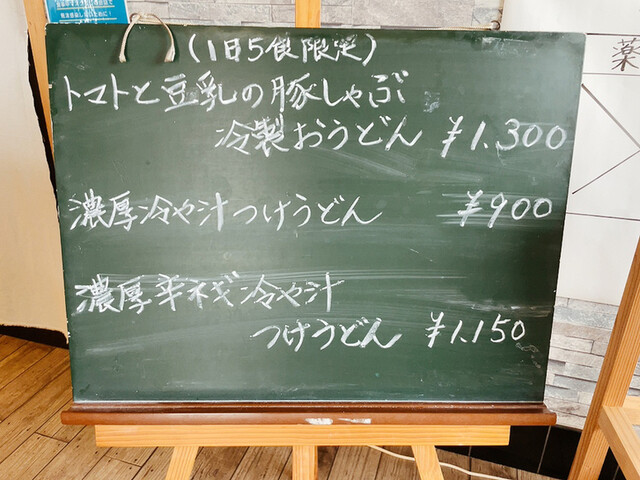 (1日5食限定)
トマトと豆乳の豚しゃぶ
冷製おうどん ¥1.300
濃厚冷や汁つけうどん ¥900
濃厚辛ネギ冷や汁
つけうどん ¥1.150
薬